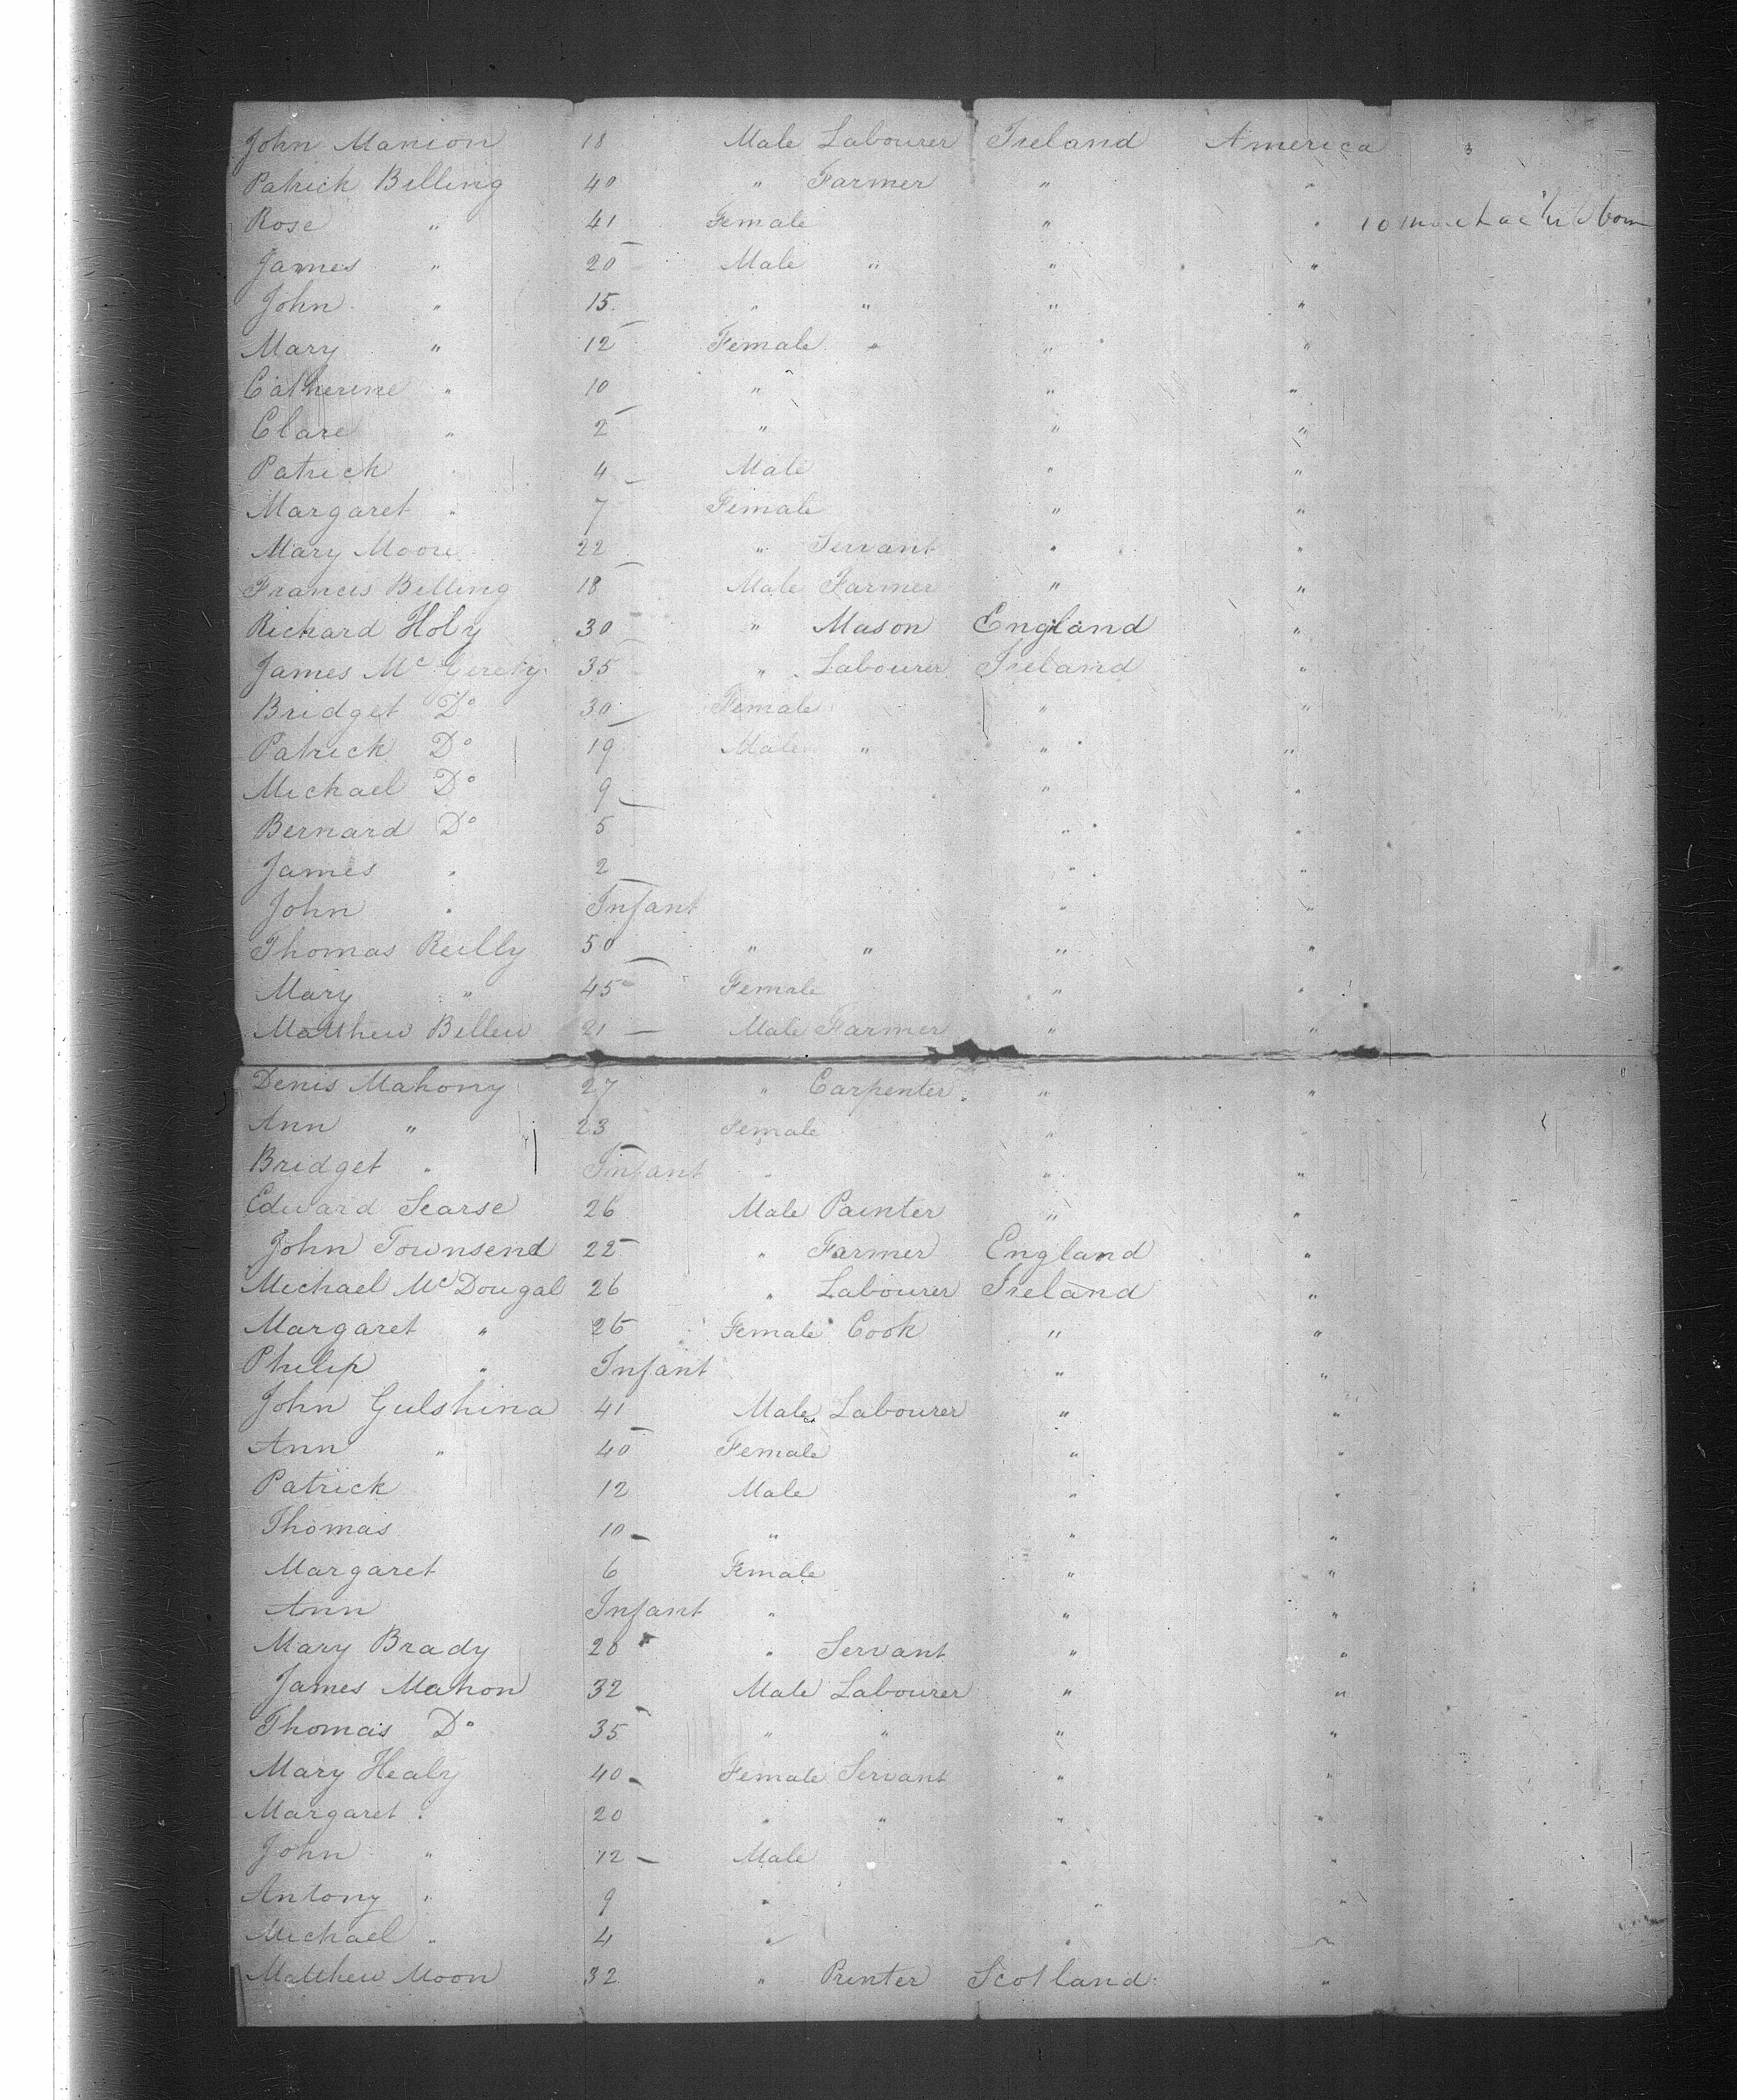 John Manion 18 Male Labourer Ireland America
Patrick Billing 40 " Farmer " "
Rose " 41 Female " " 10
James " 20 Male " " "
John " 15 " " " "
Mary " 12 Female " " "
Catherine " 10 " " "
Clare " 2 " " "
Patrick " 4 Male " "
Margaret " 7 Female " "
Mary Moore 22 " Servant " "
Francis Billing 18 Male Farmer " "
Richard Holy 30 " Mason England "
James McGerety 35 " Labourer Ireland "
Bridget Do 30 Female " "
Patrick Do 19 Male " " "
Michael Do 9 " "
Bernard Do 5 " "
James " 2 " "
John " Infant " "
Thomas Reilly 50 " " " "
Mary " 45 Female " "
Matthew Bellew 21 Male Farmer " "
Denis Mahony 27 " Carpenter " "
Ann " 23 Female "
Bridget " Infant " " "
Edward Searse 26 Male Painter " "
John Townsend 22 " Farmer England "
Michael McDougal 26 " Labourer Ireland "
Margaret " 25 Female Cook " "
Philip " Infant " "
John Gulshina 41 Male Labourer " "
Ann " 40 Female " "
Patrick 12 Male " "
Thomas 10 " " "
Margaret 6 Female " "
Ann Infant " " "
Mary Brady 20 " Servant " "
James Mahon 32 Male Labourer " "
Thomas Do 35 " " " "
Mary Healy 40 Female Servant " "
Margaret " 20 " " " "
John " 12 Male " "
Antony " 9 " " "
Michael " 4 " " "
Matthew Moon 32 " Printer Scotland "